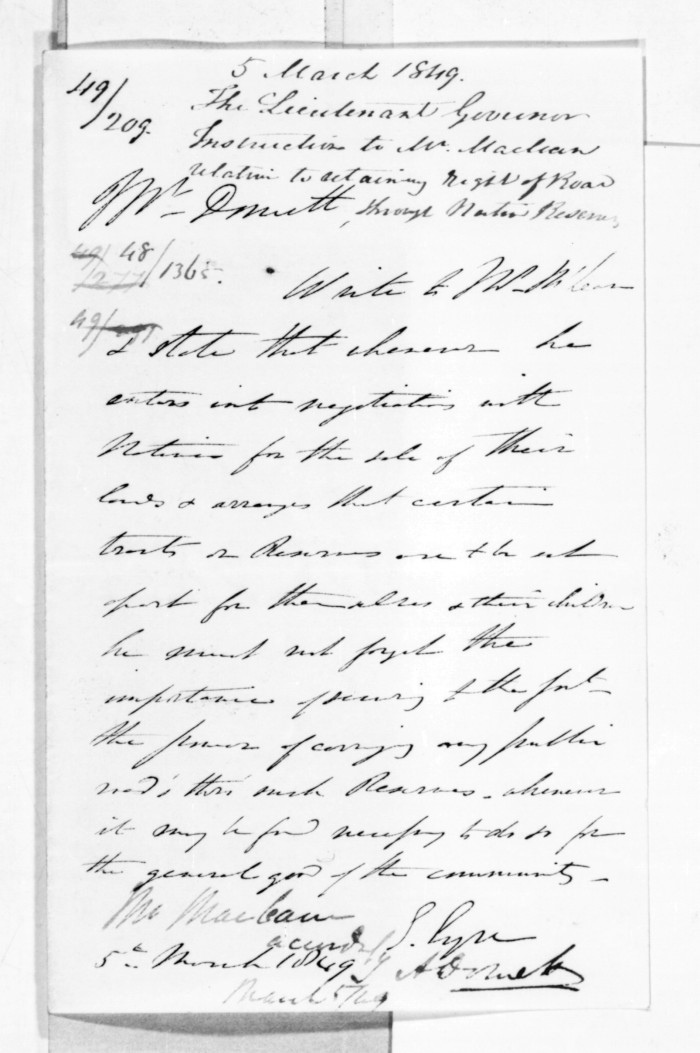 5 March 1849.
49/209.
The Lieutenant Governor
Instruction to Mr. Maclean
relative to retaining Right of Road
through Native Reserves
Mr. Domett
48/1365.
49/277
49/
Write to Mr. McLean
& state that whenever he
enters into negotiations with
Natives for the sale of their
lands & arranges that certain
tracts or Reserves are to be set
apart for themselves & their children
he must not forget the
importance of securing to the Govt
the power of carrying any public
road's thro' such Reserves - whenever
it may be found necessary to do so for
the general good of the community -
E. Eyre
Mr Maclean
accordingly
5th March 1849
A Domett
March 5/49